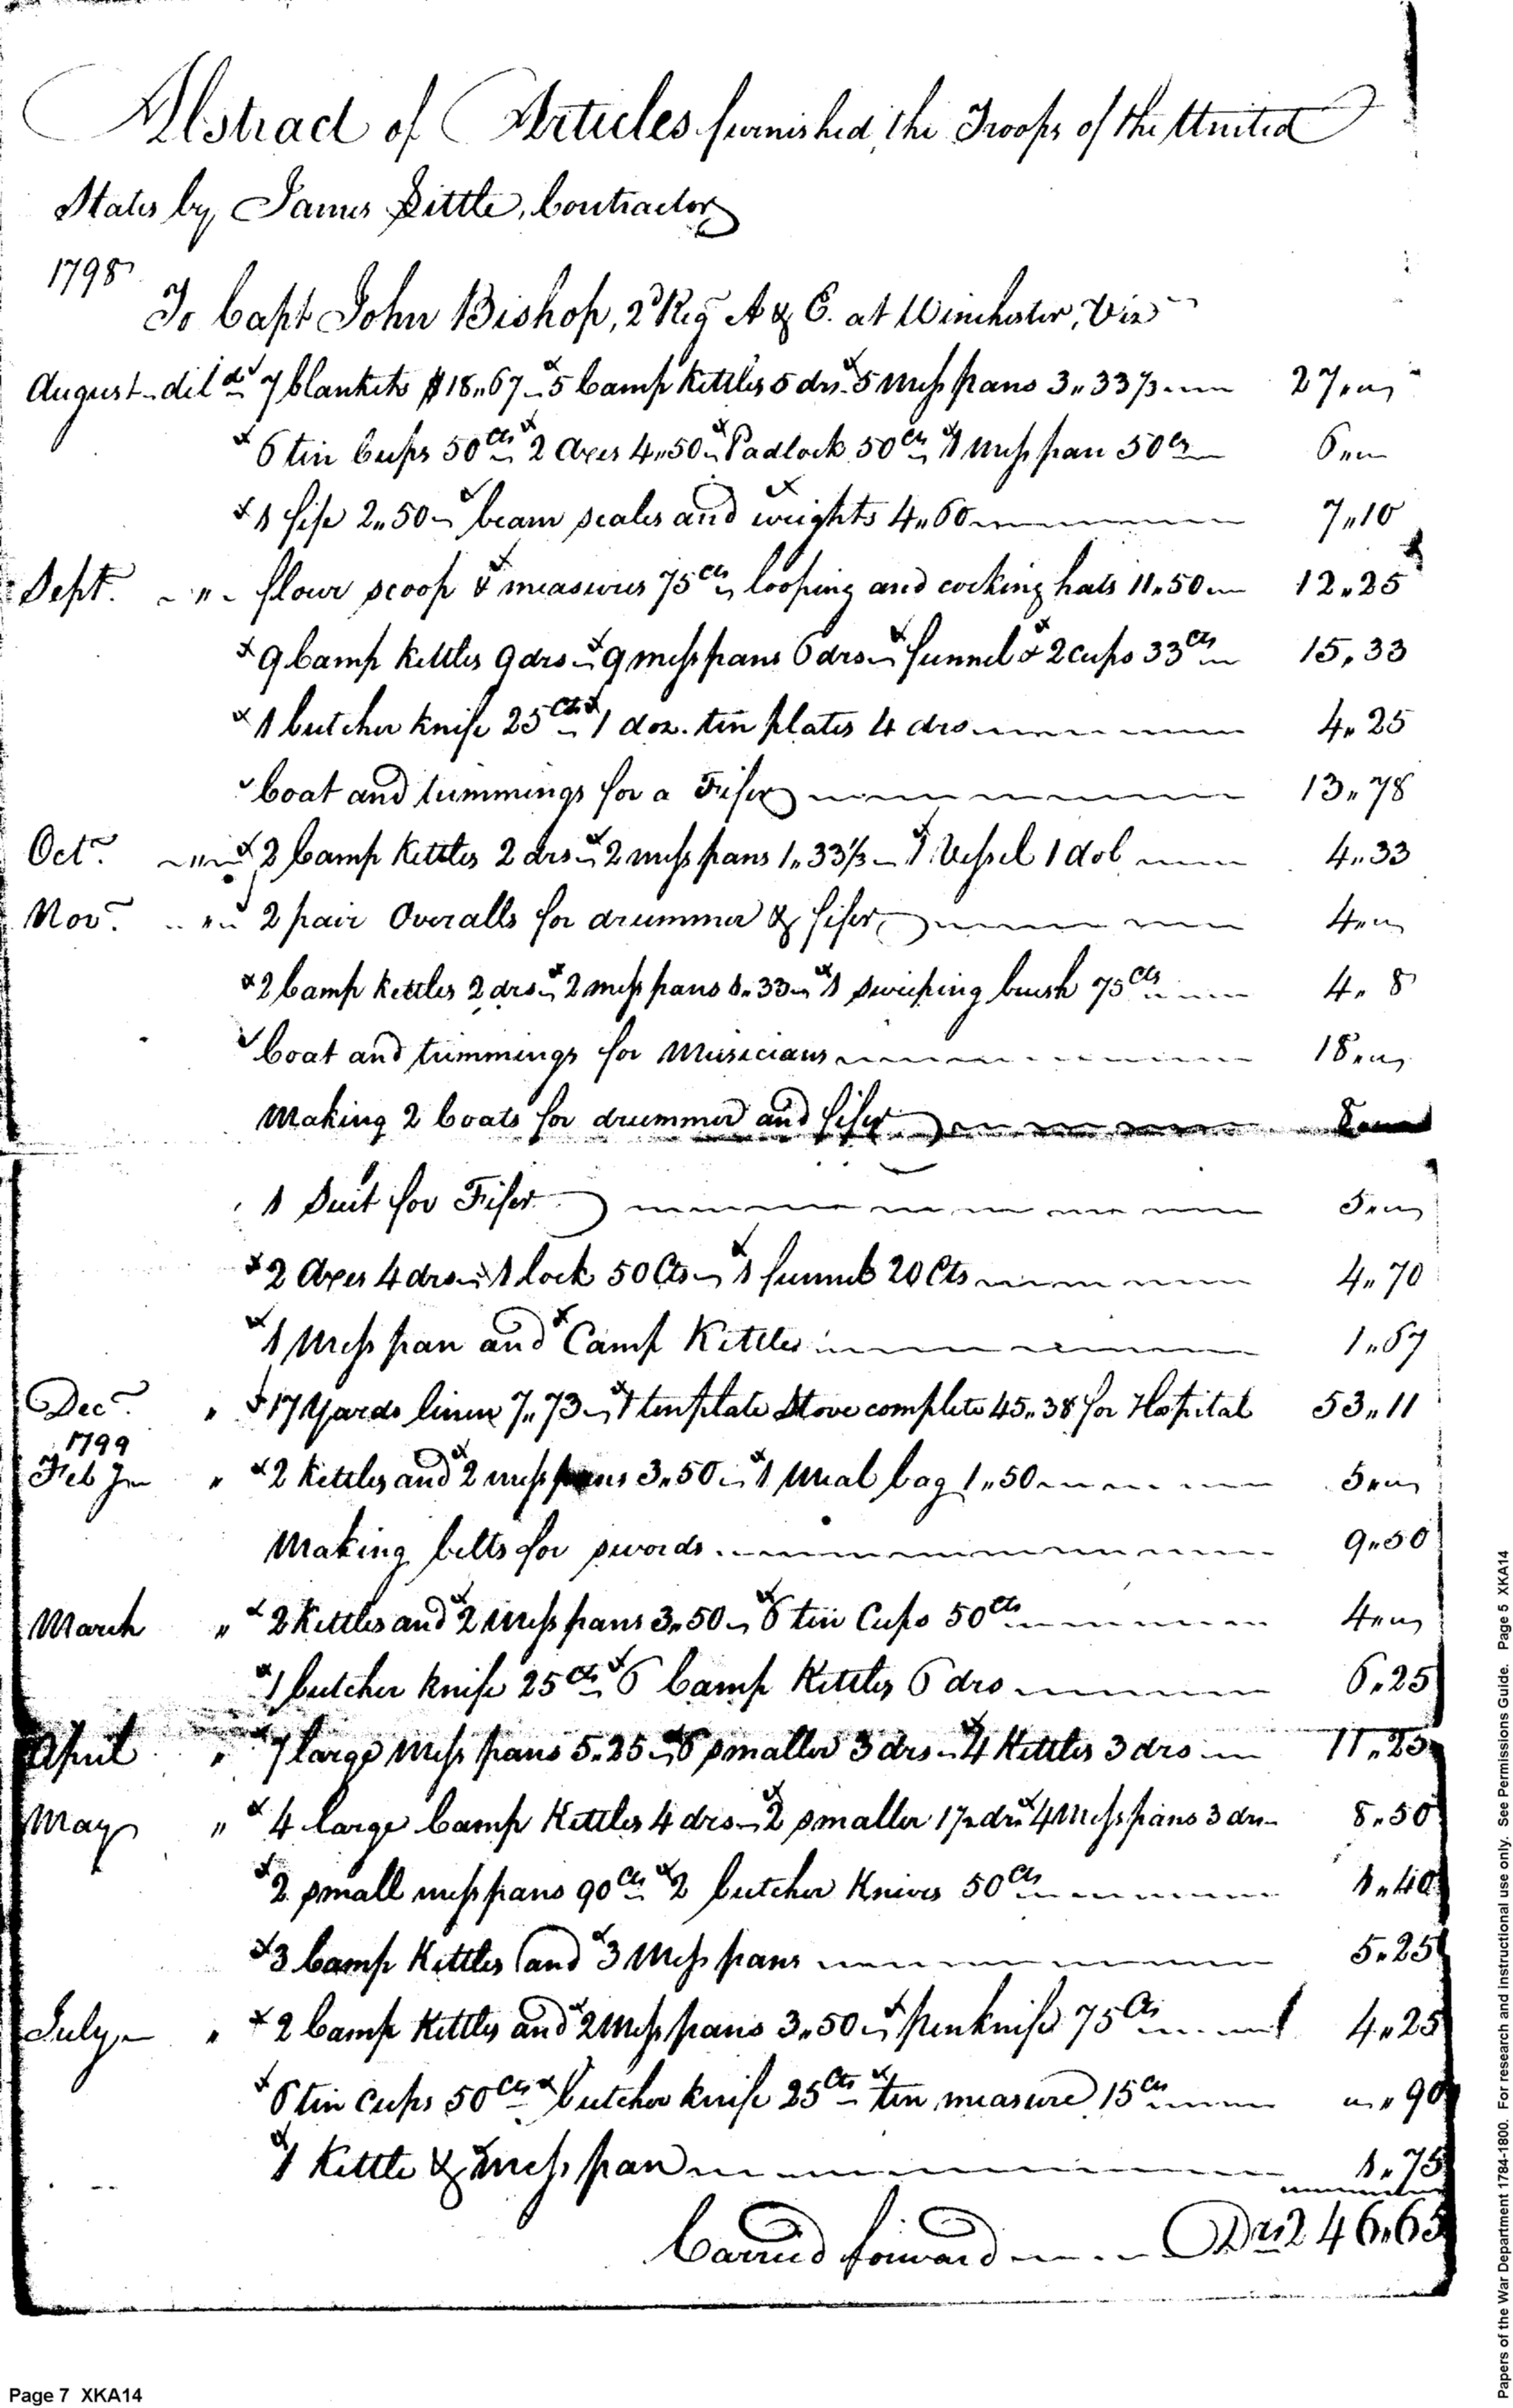 Abstract of Articles furnished, the Troops of the United
States by James Little, Contractor
1798
To Capt John Bishop, 2d Reg A & E. at Winchester, Viz
August - deld 7 blankets $18"67 - 5 Camp Kettles 5 drs - 5 Mess pans 3"33⅓ 27"
6 tin Cups 50cts 2 Axes 4"50 Padlock 50cts 1 Mess pan 50cs 6"
1 fife 2"50 beam scales and weights 4"60 7"10
Sept. " flour scoop & measures 75cts looping and cocking hats 11"50 12"25
9 Camp Kettles 9 drs 9 mess pans 6 drs funnel & 2 cups 33cts 15,33
1 butcher knife 25cts 1 doz. tin plates 4 drs 4"25
Coat and trimmings for a Fifer 13"78
Oct. " 2 Camp Kettles 2 drs 2 mess pans 1"33⅓ 1 Vessel 1 dol 4"33
Nov. " 2 pair Overalls for drummer & fifer 4"
2 Camp Kettles 2 drs 2 mess pans 1"33 1 sweeping brush 75cts 4" 8
Coat and trimmings for Musicians 18"
Making 2 Coats for drummer and fifer 8"
1 Suit for Fifer 5"
2 Axes 4 drs 1 lock 50 Cts 1 funnel 20 Cts 4"70
1 Mess pan and Camp Kettle 1"67
Dec. " 17 Yards linen 7"73 1 tenplate Stove complete 45"38 for Hospital 53"11
1799
Feb " 2 Kettles and 2 mess pans 3"50 1 Meal bag 1"50 5"
Making belts for swords 9"50
March " 2 Kettles and 2 Mess pans 3"50 6 tin Cups 50cts 4"
1 butcher knife 25cts 6 Camp Kettles 6 drs 6"25
April " 7 large Mess pans 5"25 6 smaller 3 drs 4 Kettles 3 drs 11"25
May " 4 large Camp Kettles 4 drs 2 smaller 1½ drs 4 Mess pans 3 drs 8"50
2 small mess pans 90cts 2 butcher Knives 50cts 1"40
3 Camp Kettles and 3 Mess pans 5"25
July " 2 Camp Kettles and 2 Mess pans 3"50 penknife 75cts 4"25
6 tin Cups 50cts butcher knife 25cts tin measure 15cts "90
1 Kettle & mess pan 1"75
Carried forward Drs 246"65
Page 7 XKA14
Papers of the War Department 1784-1800. For research and instructional use only. See Permissions Guide. Page 5 XKA14